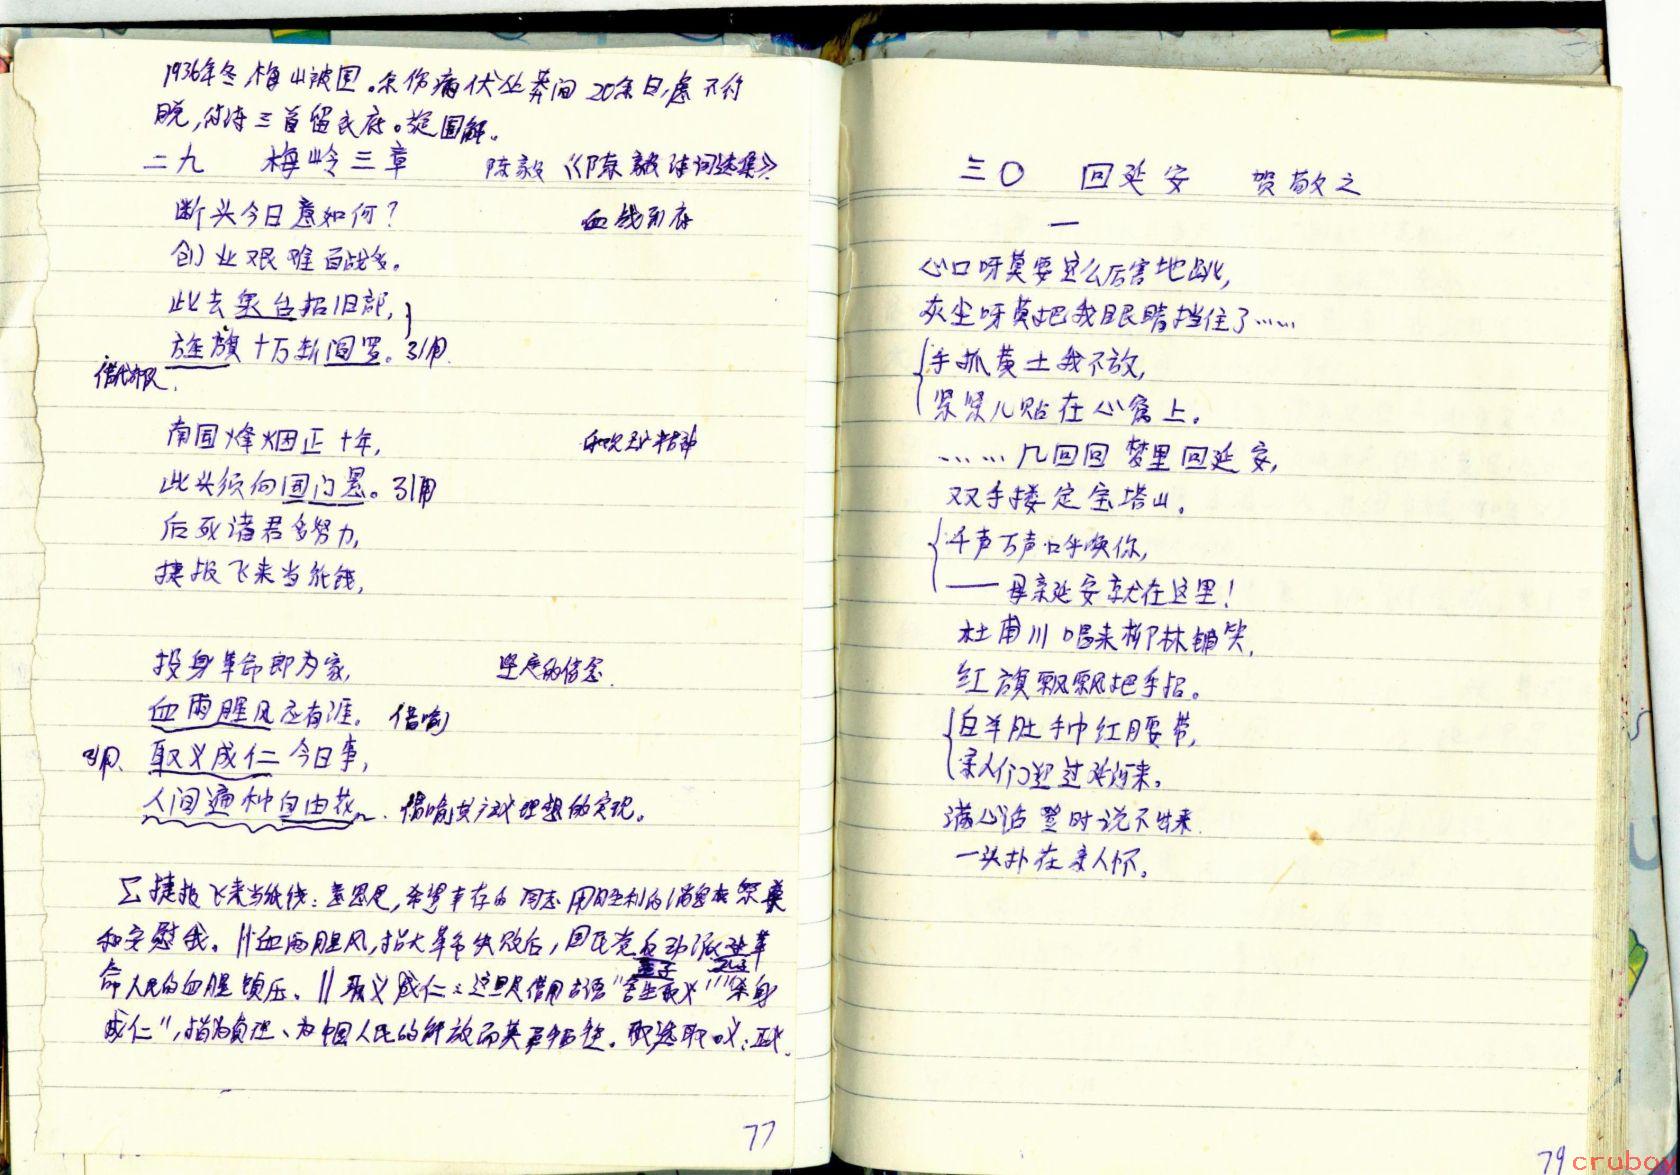 1936年冬梅山被围。余伤病伏丛莽间20余日,虑不得
脱,得诗三首留衣底。旋围解。
二九 梅岭三章 陈毅《陈毅诗词选集》
断头今日意如何?
创业艰难百战多。
此去泉台招旧部,
旌旗十万斩阎罗。引用
借代部队.
南国烽烟正十年,
此头须向国门悬。引用
后死诸君多努力,
捷报飞来当纸钱,
投身革命即为家, 坚定的信念.
血雨腥风应有涯。借喻
引用. 取义成仁今日事,
人间遍种自由花. 借喻共产主义理想的实现。
捷报飞来当纸钱:意思是,希望幸存的同志用胜利的消息来祭奠
和安慰我。∥血雨腥风,指大革命失败后,国民党反动派对革
孟子 孔子
命人民的血腥镇压。∥取义成仁:这里是借用古语"舍生取义""杀身
成仁",指为真理、为中国人民的解放而英勇牺牲。
77
三〇 回延安 贺敬之
一
心口呀莫要这么厉害地跳,
灰尘呀莫把我眼睛挡住了……
手抓黄土我不放,
紧紧儿贴在心窝上.
……几回回梦里回延安,
双手搂定宝塔山。
千声万声呼唤你,
——母亲延安就在这里!
杜甫川唱来柳林铺笑,
红旗飘飘把手招。
白羊肚手巾红腰带,
亲人们迎过延河来。
满心话登时说不出来.
一头扑在亲人怀。
79
cruboy